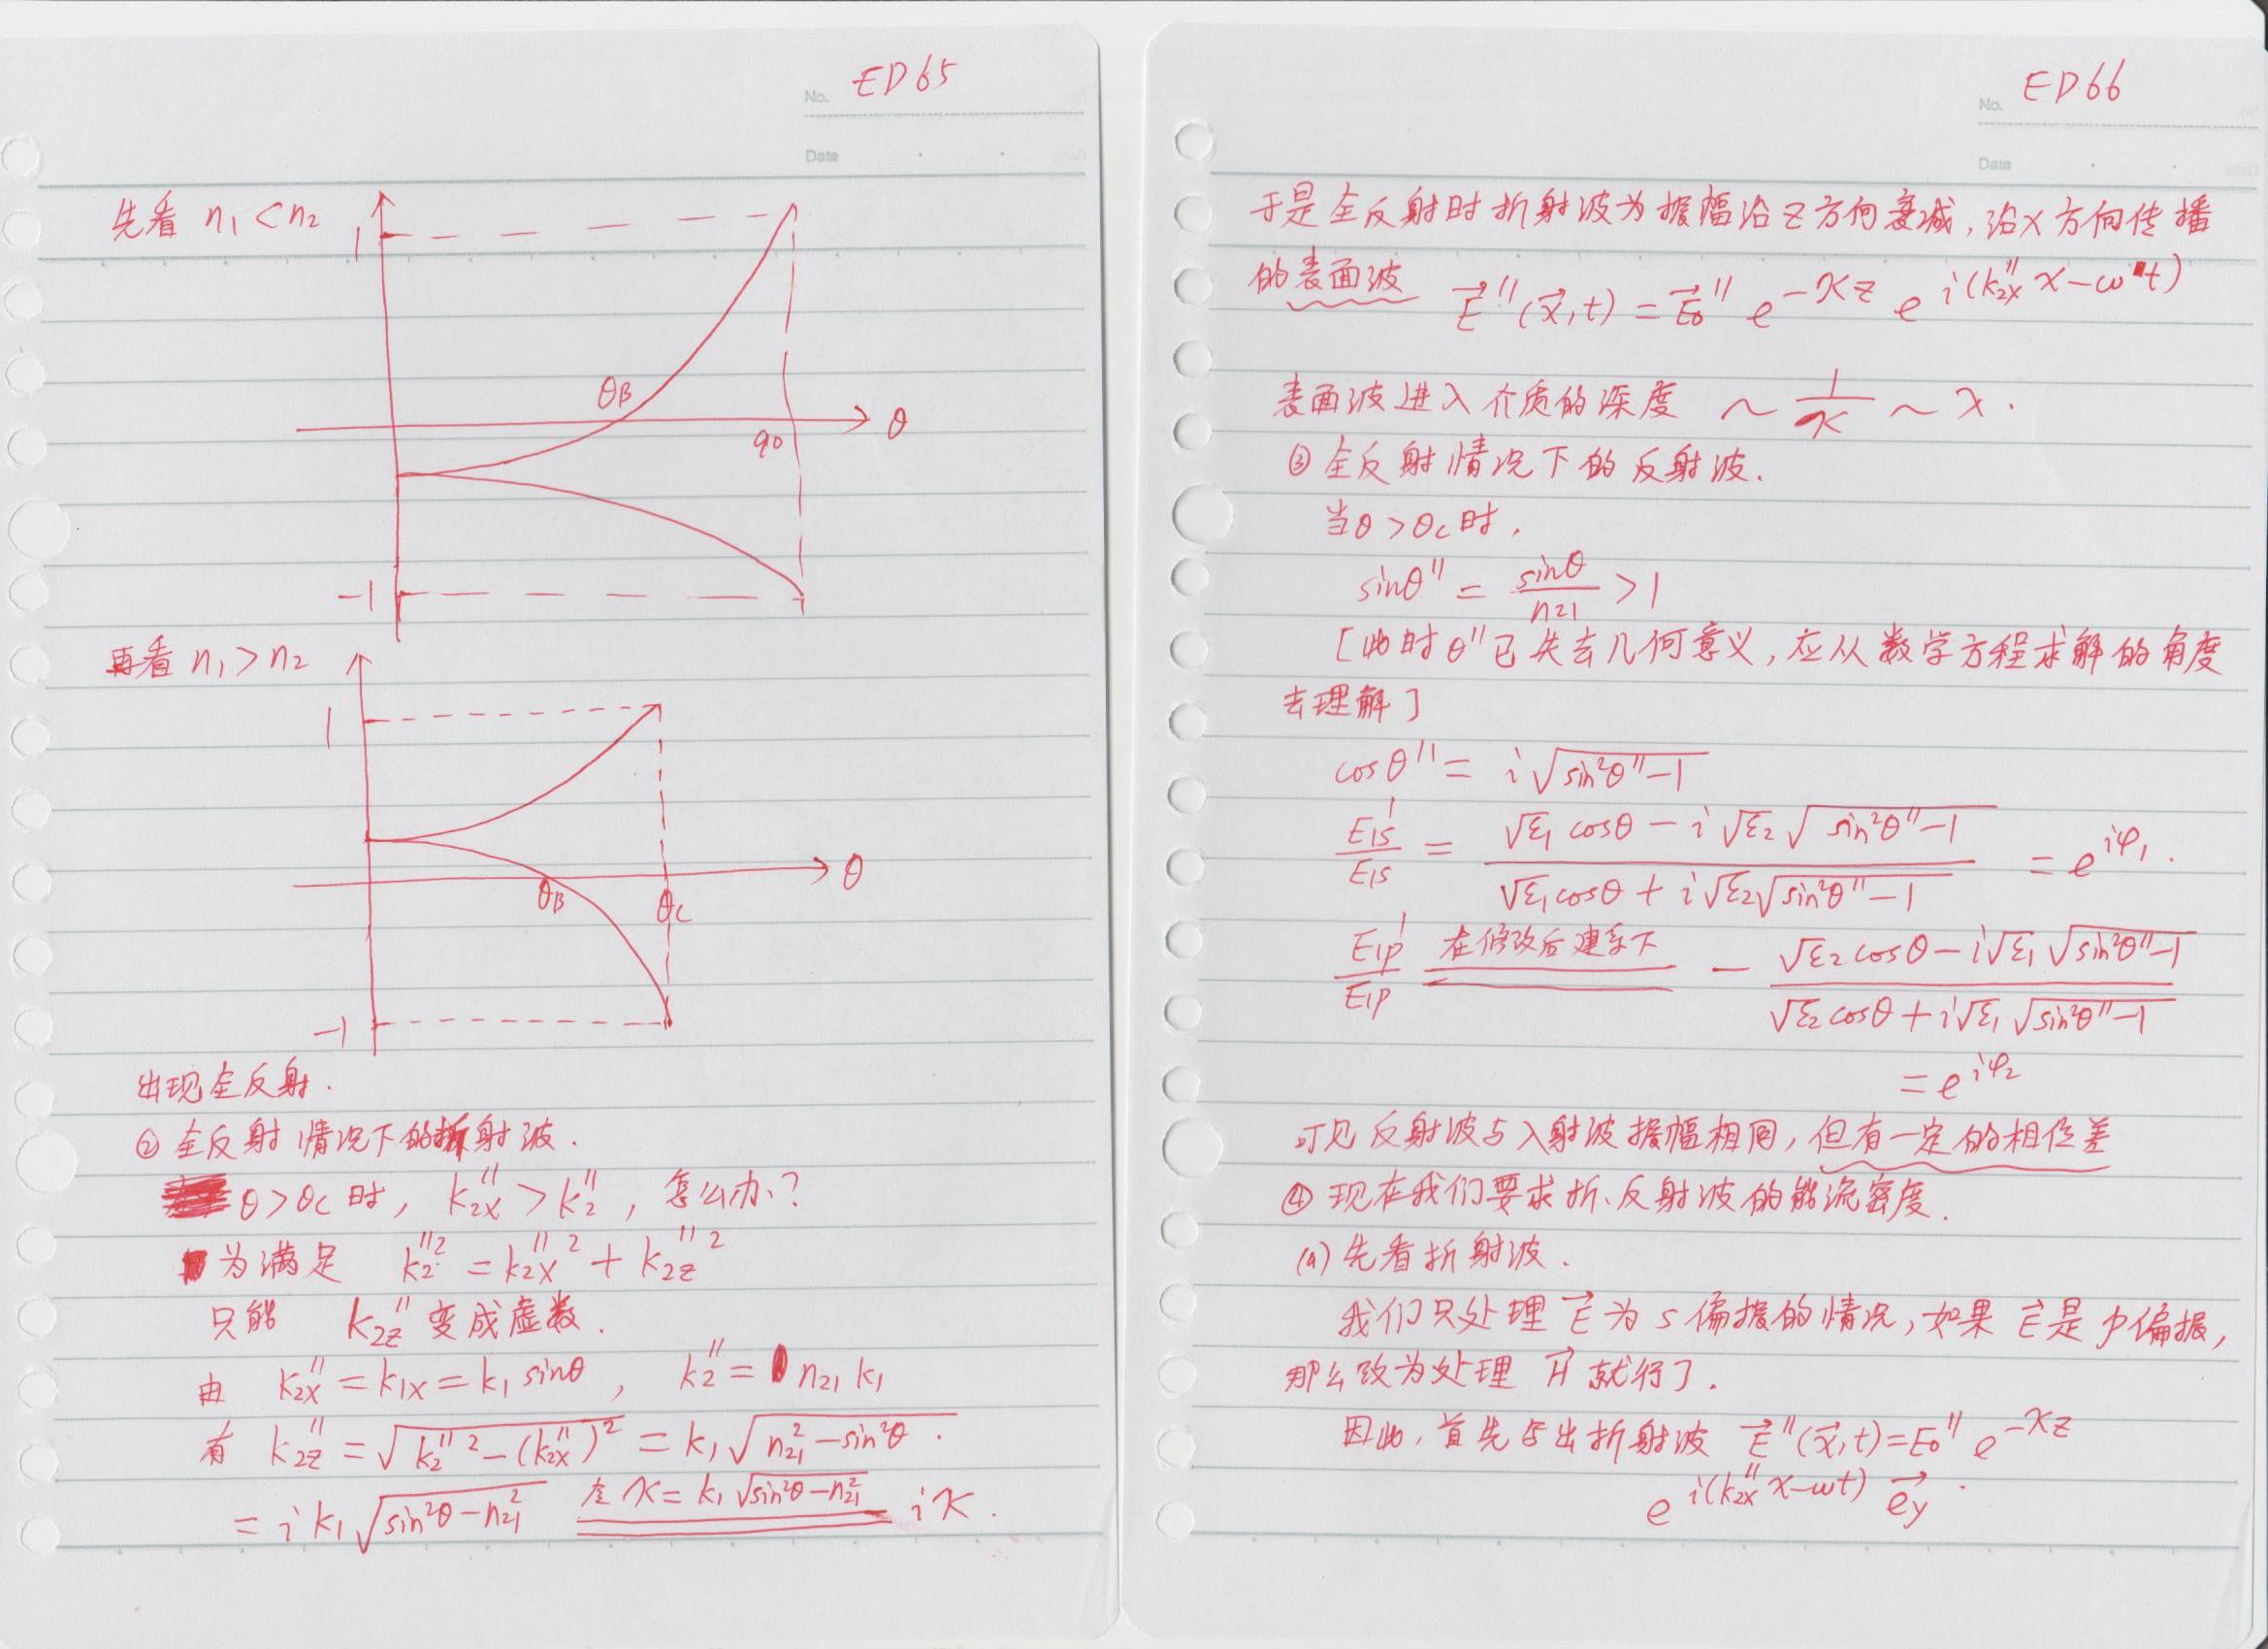 No. ED65
Date
先看 n₁ < n₂
1
θB
90
θ
-1
再看 n₁ > n₂
1
θ
θB
θc
-1
出现全反射.
② 全反射情况下的折射波.
θ > θc 时, k₂ₓ'' > k₂'', 怎么办?
为满足 k₂''² = k₂ₓ''² + k₂z''²
只能 k₂z'' 变成虚数.
由 k₂ₓ'' = k₁ₓ = k₁ sinθ , k₂'' = n₂₁ k₁
有 k₂z'' = √(k₂''² - (k₂ₓ'')²) = k₁ √(n₂₁² - sin²θ) .
= i k₁ √(sin²θ - n₂₁²) 令 κ = k₁ √(sin²θ - n₂₁²) iκ .
No. ED66
Date
于是全反射时折射波为振幅沿 z 方向衰减, 沿 x 方向传播
的表面波 E⃗''(x⃗,t) = E⃗₀'' e^(-κz) e^(i(k₂ₓ'' x - ωt))
表面波进入介质的深度 ~ 1/κ ~ λ .
③ 全反射情况下的反射波.
当 θ > θc 时,
sinθ'' = sinθ/n₂₁ > 1
[此时 θ'' 已失去几何意义, 应从数学方程求解的角度
去理解]
cosθ'' = i √(sin²θ'' - 1)
E₁s'/E₁s = (√ε₁ cosθ - i √ε₂ √(sin²θ'' - 1))/(√ε₁ cosθ + i √ε₂ √(sin²θ'' - 1)) = e^(iφ₁) .
E₁p'/E₁p 在修改后建系下 - (√ε₂ cosθ - i √ε₁ √(sin²θ'' - 1))/(√ε₂ cosθ + i √ε₁ √(sin²θ'' - 1))
= e^(iφ₂)
可见反射波与入射波振幅相同, 但有一定的相位差
④ 现在我们要求折、反射波的能流密度.
(a) 先看折射波.
我们只处理 E⃗ 为 s 偏振的情况, 如果 E⃗ 是 p 偏振,
那么改为处理 H⃗ 就行了.
因此, 首先写出折射波 E⃗''(x⃗,t) = E₀'' e^(-κz)
e^(i(k₂ₓ'' x - ωt)) e⃗y .